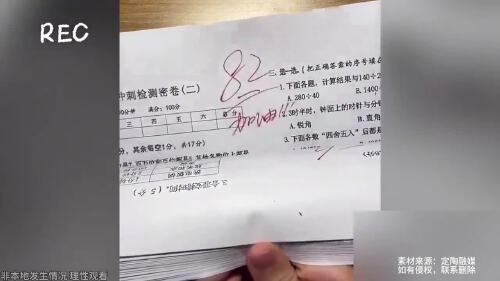 REC
冲刺检测密卷(二)
82
加油!!
三、选一选(把正确答案的序号填
0分钟 满分:100分
三 四 五 六 总分
1.下面各题,计算结果与140÷2
A.280÷40
B.1400
2.3时半时,钟面上的时针与分针
A.锐角
B.直角
3.下面各数“四舍五入”后都是
分,其余每空1分,共17分)
(5分)
素材来源:定陶融媒
如有侵权,联系删除
非本地发生情况 理性观看